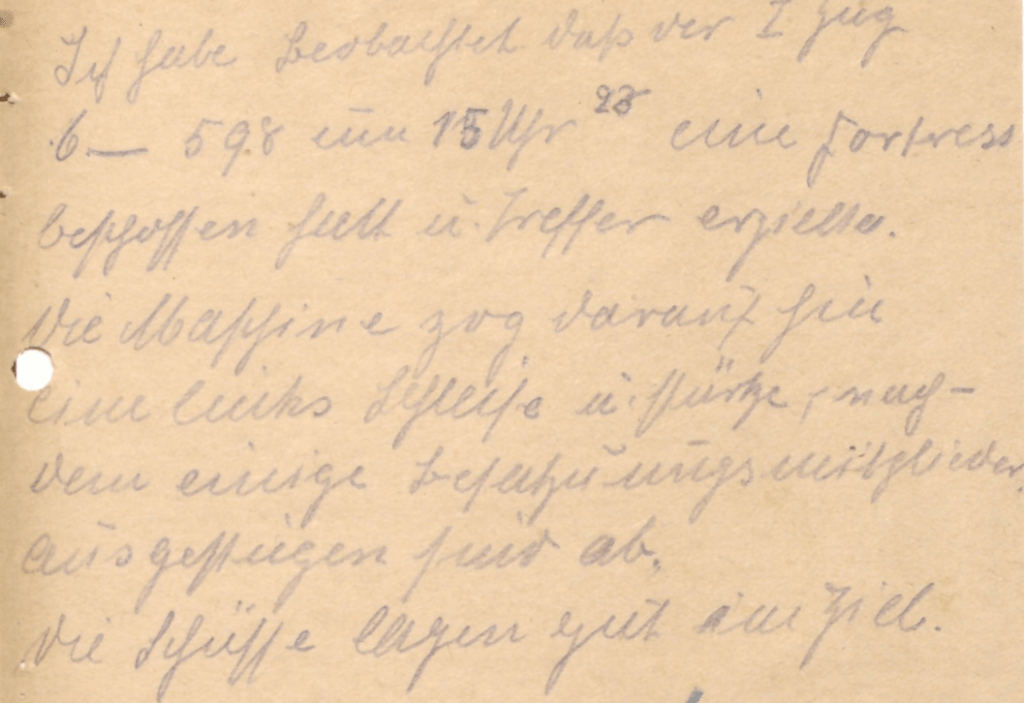 Ich habe Beobachtet daß der I Zug
6 — 598 um 15 Uhr 23 eine Fortress
beschossen hatt u. Treffer erzielte.
Die Maschine zog darauf hin
eine links Schleife u. stürtze, nach-
dem einige Besatzuungsmitglieder,
ausgestiegen sind ab.
Die Schüsse lagen gut im Ziel.